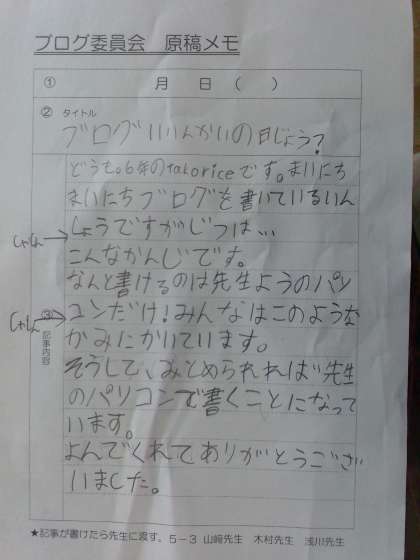 ブログ委員会 原稿メモ
① 月 日 ( )
② タイトル
ブログいいんかいの日じょう?
どうも。6年のtakoriceです。まいにち
まいにちブログを書いているいん
しょうですがじつは…
しゃしん
こんなかんじです。
なんと書けるのは先生ようのパソ
コンだけ!みんなはこのような
しゃしん
③ 記事内容
かみにかいています。
そうして、みとめられれば先生
のパソコンで書くことになって
います。
よんでくれてありがとうござ
いました。
★記事が書けたら先生に渡す。5-3 山﨑先生 木村先生 浅川先生